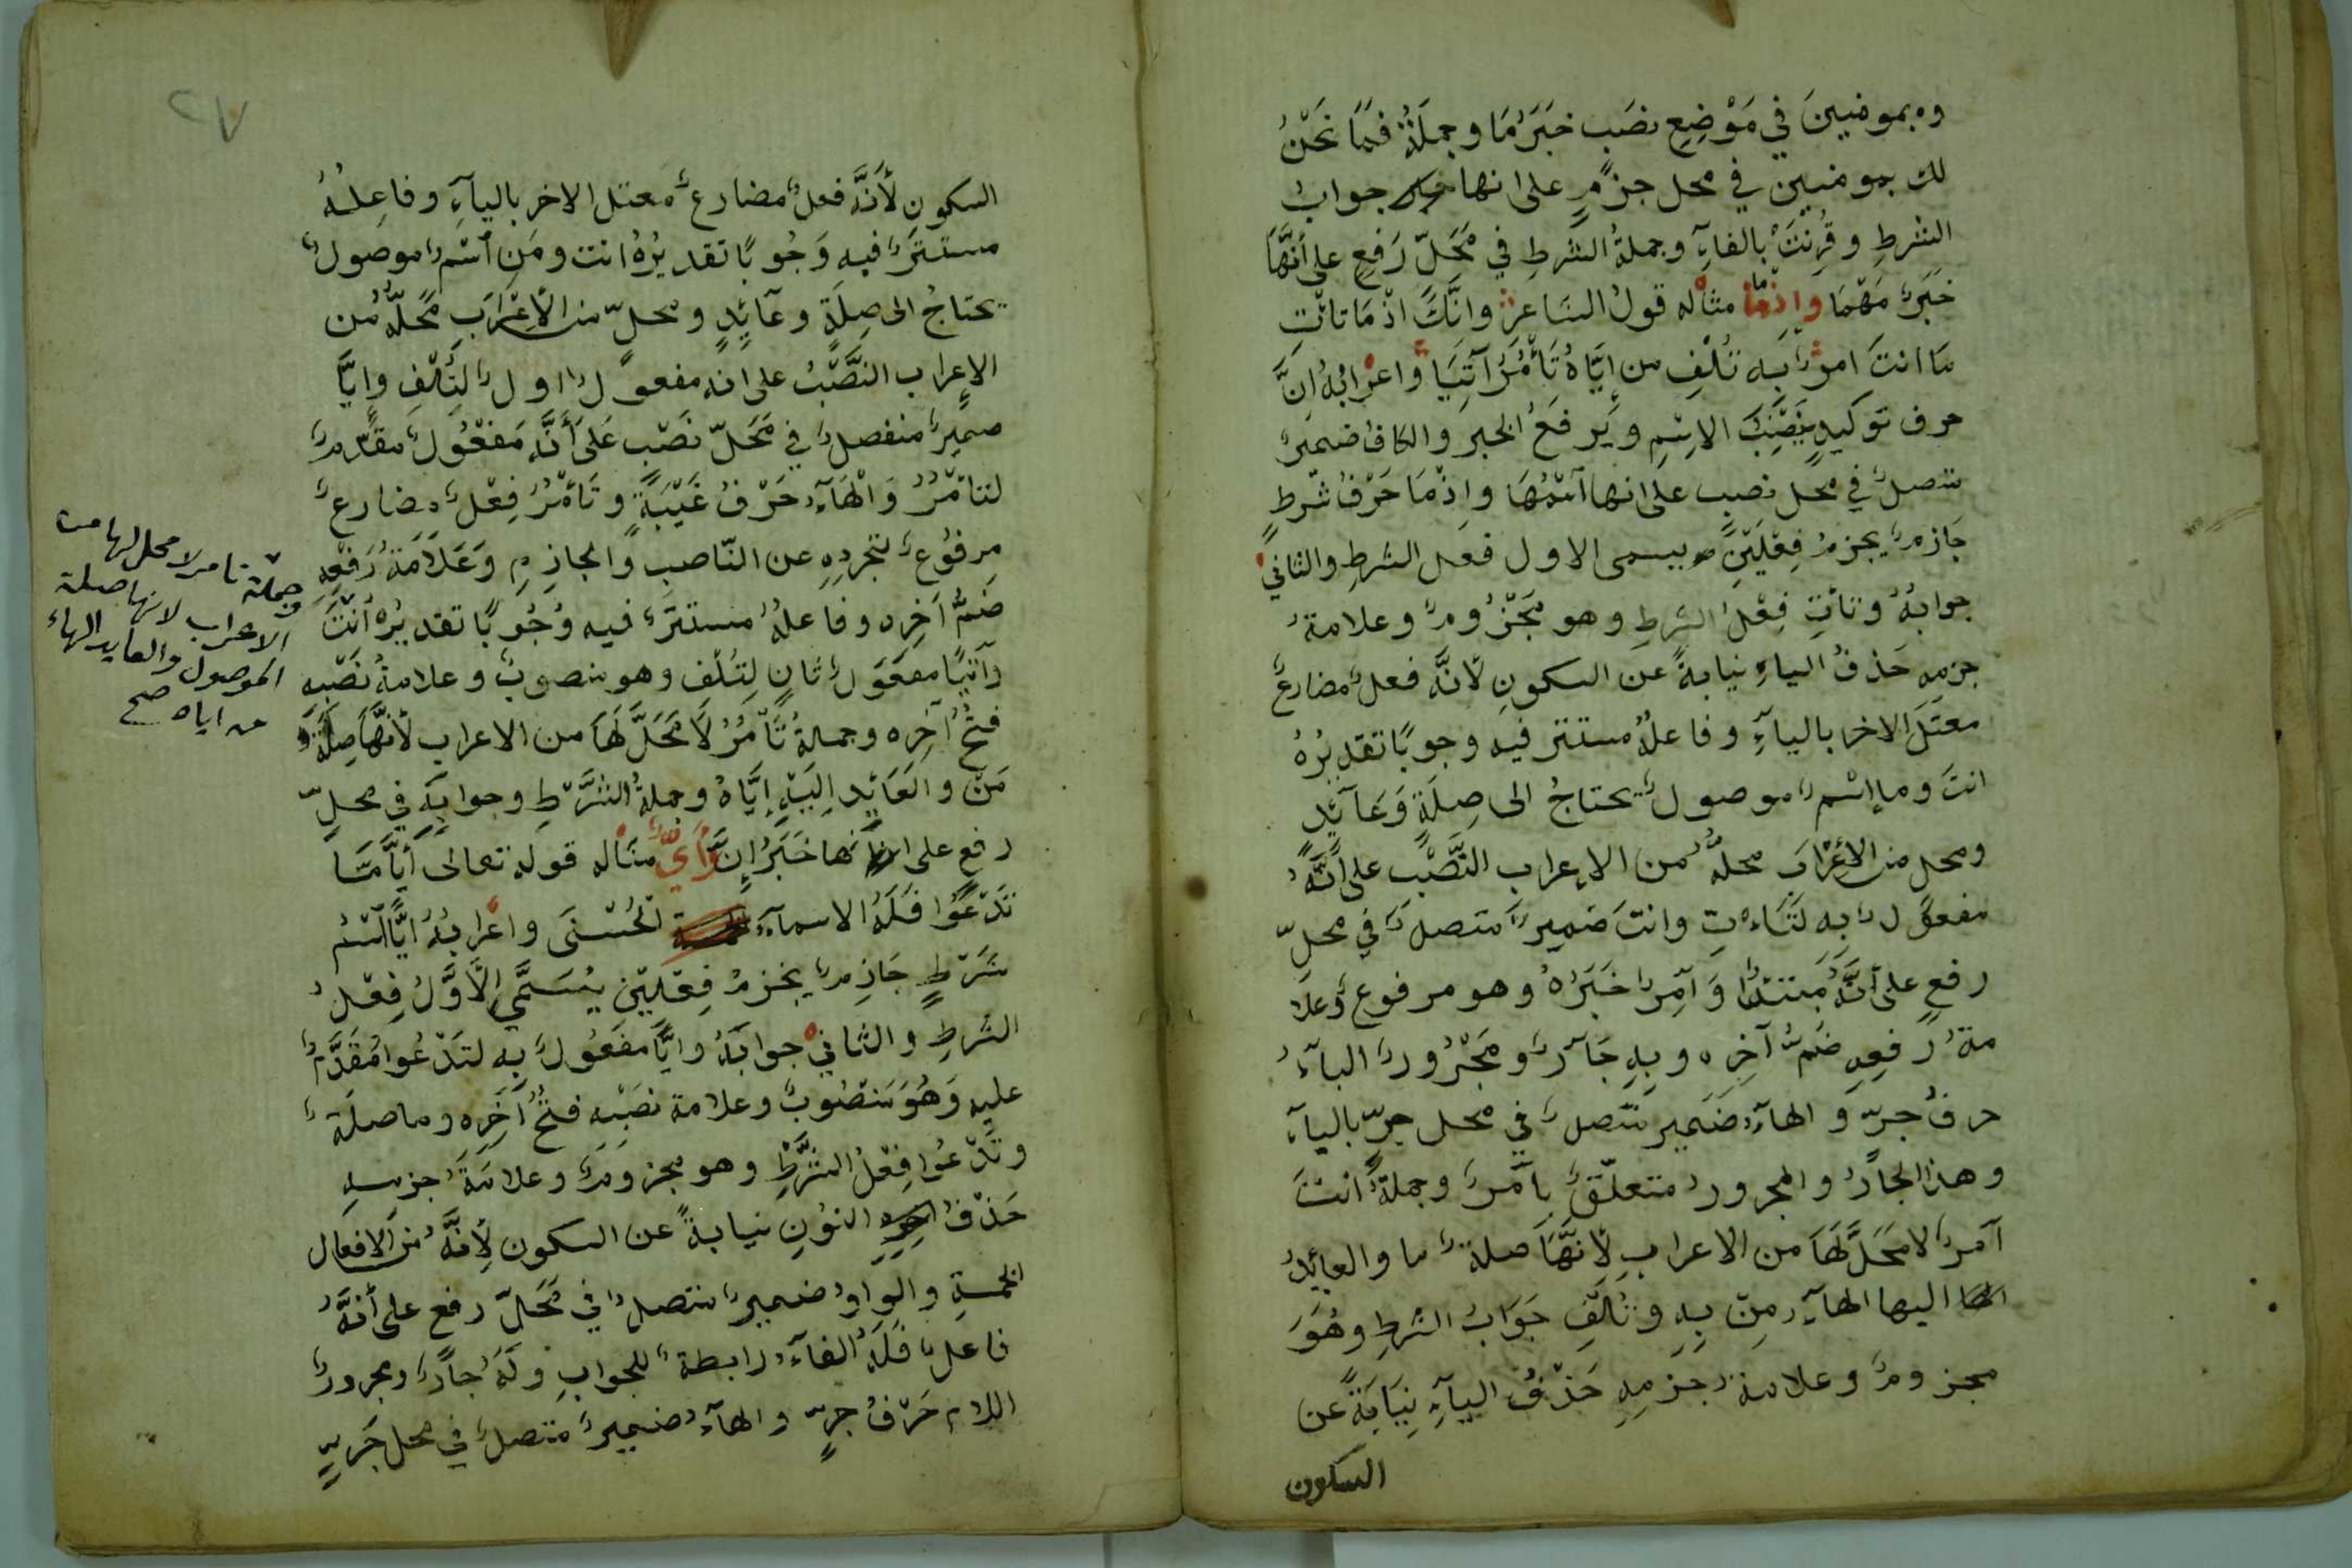 وه بمومنينَ في مَوْضِعِ نصَب خبَرُ مَا وجملَةُ فمَا نَحْنُ
لك بمومنين في محل جزْمٍ على انها جوابُ
الشرطِ وقُرِنَتْ بالفآءِ وجملةُ الشرطِ في مَحَلّ رَفعٍ على أنَّهَا
خَبَرُ مَهْمَا وإذْما مثاله قولُ الشاعرِ وانَّكَ اذْمَا تاتِ
مَا انتَ امرٌ بَه تُلْفِ من إيَّاهُ تَأْمُرُ آتِيَا وَاعْرابُهُ انَّ
حرف توكيدٍ يَنْصِبُ الاِسْمِ ويَرفَعُ الخبر والكافُ ضميرٌ
متصلٌ في محل نصبِ على انها آسْمُهَا وإذْمَا حَرْفُ شرطٍ
جَازمٌ يجزمُ فِعْلَيْنِ يسمى الاول فعل الشرطِ والثاني
جوابُهُ وتأتِ فِعْلُ الشرطِ وهو مَجْزُومٌ وعلامةُ
جزمِهِ حَذفُ الياءِ نيابةً عن السكونِ لأنَّه فعلٌ مضارعٌ
معتَلَ الاخر باليآءِ وفاعلُهُ مستتر فيه وجوبًا تقديرُهُ
انتَ وما إسْمٌ موصولٌ يحتاجُ الى صِلَةٍ وَعَآئِدٍ
ومحل من الأعْرَاب محلُّهُ من الاعراب النَّصْب على أنَّهُ
مفعولٌ بِه لتَاءتِ وانتَ ضميرٌ متصلٌ في محلِّ
رفعٍ على أنَّهُ مُبتدَا وَآمِرٌ خبَرُهُ وهو مرفوعٌ وعَلا
مةُ رفعِهِ ضمُّ آخِرِه وبِهِ جَآرٌ ومَجْرُورٌ البآءُ
حرفُ جرّ وَالهآءُ ضَمير متصلٌ في محل جرّ باليآءِ
وهذا الجارُ والمجرورُ متعلّقٌ بآمرٌ وجملةُ انتَ
آمرٌ لا مَحَلَّ لَهَا من الاعرابِ لأنَّهَا صلةُ ما والعائِدُ
اليها الهآءُ مِنْ بِهِ وتُلْفِ جَوَابُ الشرطِ وهُوَ
مجزومٌ وعلامةُ جزمِهِ حَذْفُ اليآءِ نِيَابَةً عن
السكون
٢٧
السكونِ لأنَّه فعلٌ مضارعٌ مَعتل الاخر باليآءِ وفاعِلُهُ
مستترٌ فيه وَجُوبًا تقديرُهُ انت ومَن آسْمٌ موصولٌ
يحتاجُ الى صِلَةٍ وعآئِدٍ ومحلّ من الأعْرَابِ مَحَلُّهُ من
الإعراب النَّصْبُ على انه مفعولٌ اولٌ لتُلْفِ وإيَّا
ضميرٌ منفصلٌ في مَحَلّ نَصْبٍ عَلَى أنَّه مَفْعُولٌ مقدَّمٌ
لتأمُرُ وَالْهَآءُ حَرْفُ غَيْبَةٍ وتَأمُرُ فِعْلٌ مضارعٌ
مرفوُعٌ لتجردِهِ عن النّاصبِ وَالجازِمِ وَعَلَامَةُ رَفْعِهِ
ضَمُّ آخِرِه وفاعلُهُ مستترٌ فيه وُجُوبًا تقديرُه أَنْتَ
وآتيًا مفعَولٌ ثانٍ لتُلْف وهو منصوبٌ وعلامةُ نَصْبِهِ
فتحُ آخرِه وجملةُ تَأْمُرُ لَا مَحَلَّ لَهَا من الاعراب لأنَّهَا صِلَةُ
مَنْ والعَائِد اليَهِ إيَّاهُ وجملةُ الشَّرْطِ وجوابِهِ في محلِّ
رفعٍ على انها خَبَرُ إنَّ وَأيٌّ مثاله قوله تعالى أيًّامَّا
تَدْعُوا فَلَهُ الاسمآءُ الحُسْنَى واعْرابُهُ ايًّا آسْمُ
شَرْطٍ جَازِمٌ يجْزمُ فِعْلَيْنِ يُسَمَّي الأَوَّلُ فِعْلُ
الشرطِ والثاني جوابَهُ وايَّا مفْعُولٌ بِه لتَدْعُوا مُقَدَّمٌ
عليه وَهُوَ مَنْصُوبٌ وعلامة نصْبِهِ فتحُ آخَرِه وما صلةٌ
وتَدْعُوا فِعْلُ الشَّرْطِ وهو مجزومٌ وعلامَةُ جزمِهِ
حَذْفُ النونِ نيابةً عن السكون لأنَّهُ من الافعال
الخمسةِ والواوُ ضميرٌ متصلٌ في مَحَلّ رفع على أنَّهُ
فاعلٌ فَلَهُ الفآءُ رابطةٌ للجوابِ ولَهُ جارٌ ومجرورٌ
اللام حَرْفُ جرٍّ والهآءُ ضميرٌ متصلٌ في محل جَرٍّ
وجملة تامر لا محل لها من
الاعراب لانها صلة
الموصول والعايد الهاء
من اياه صح